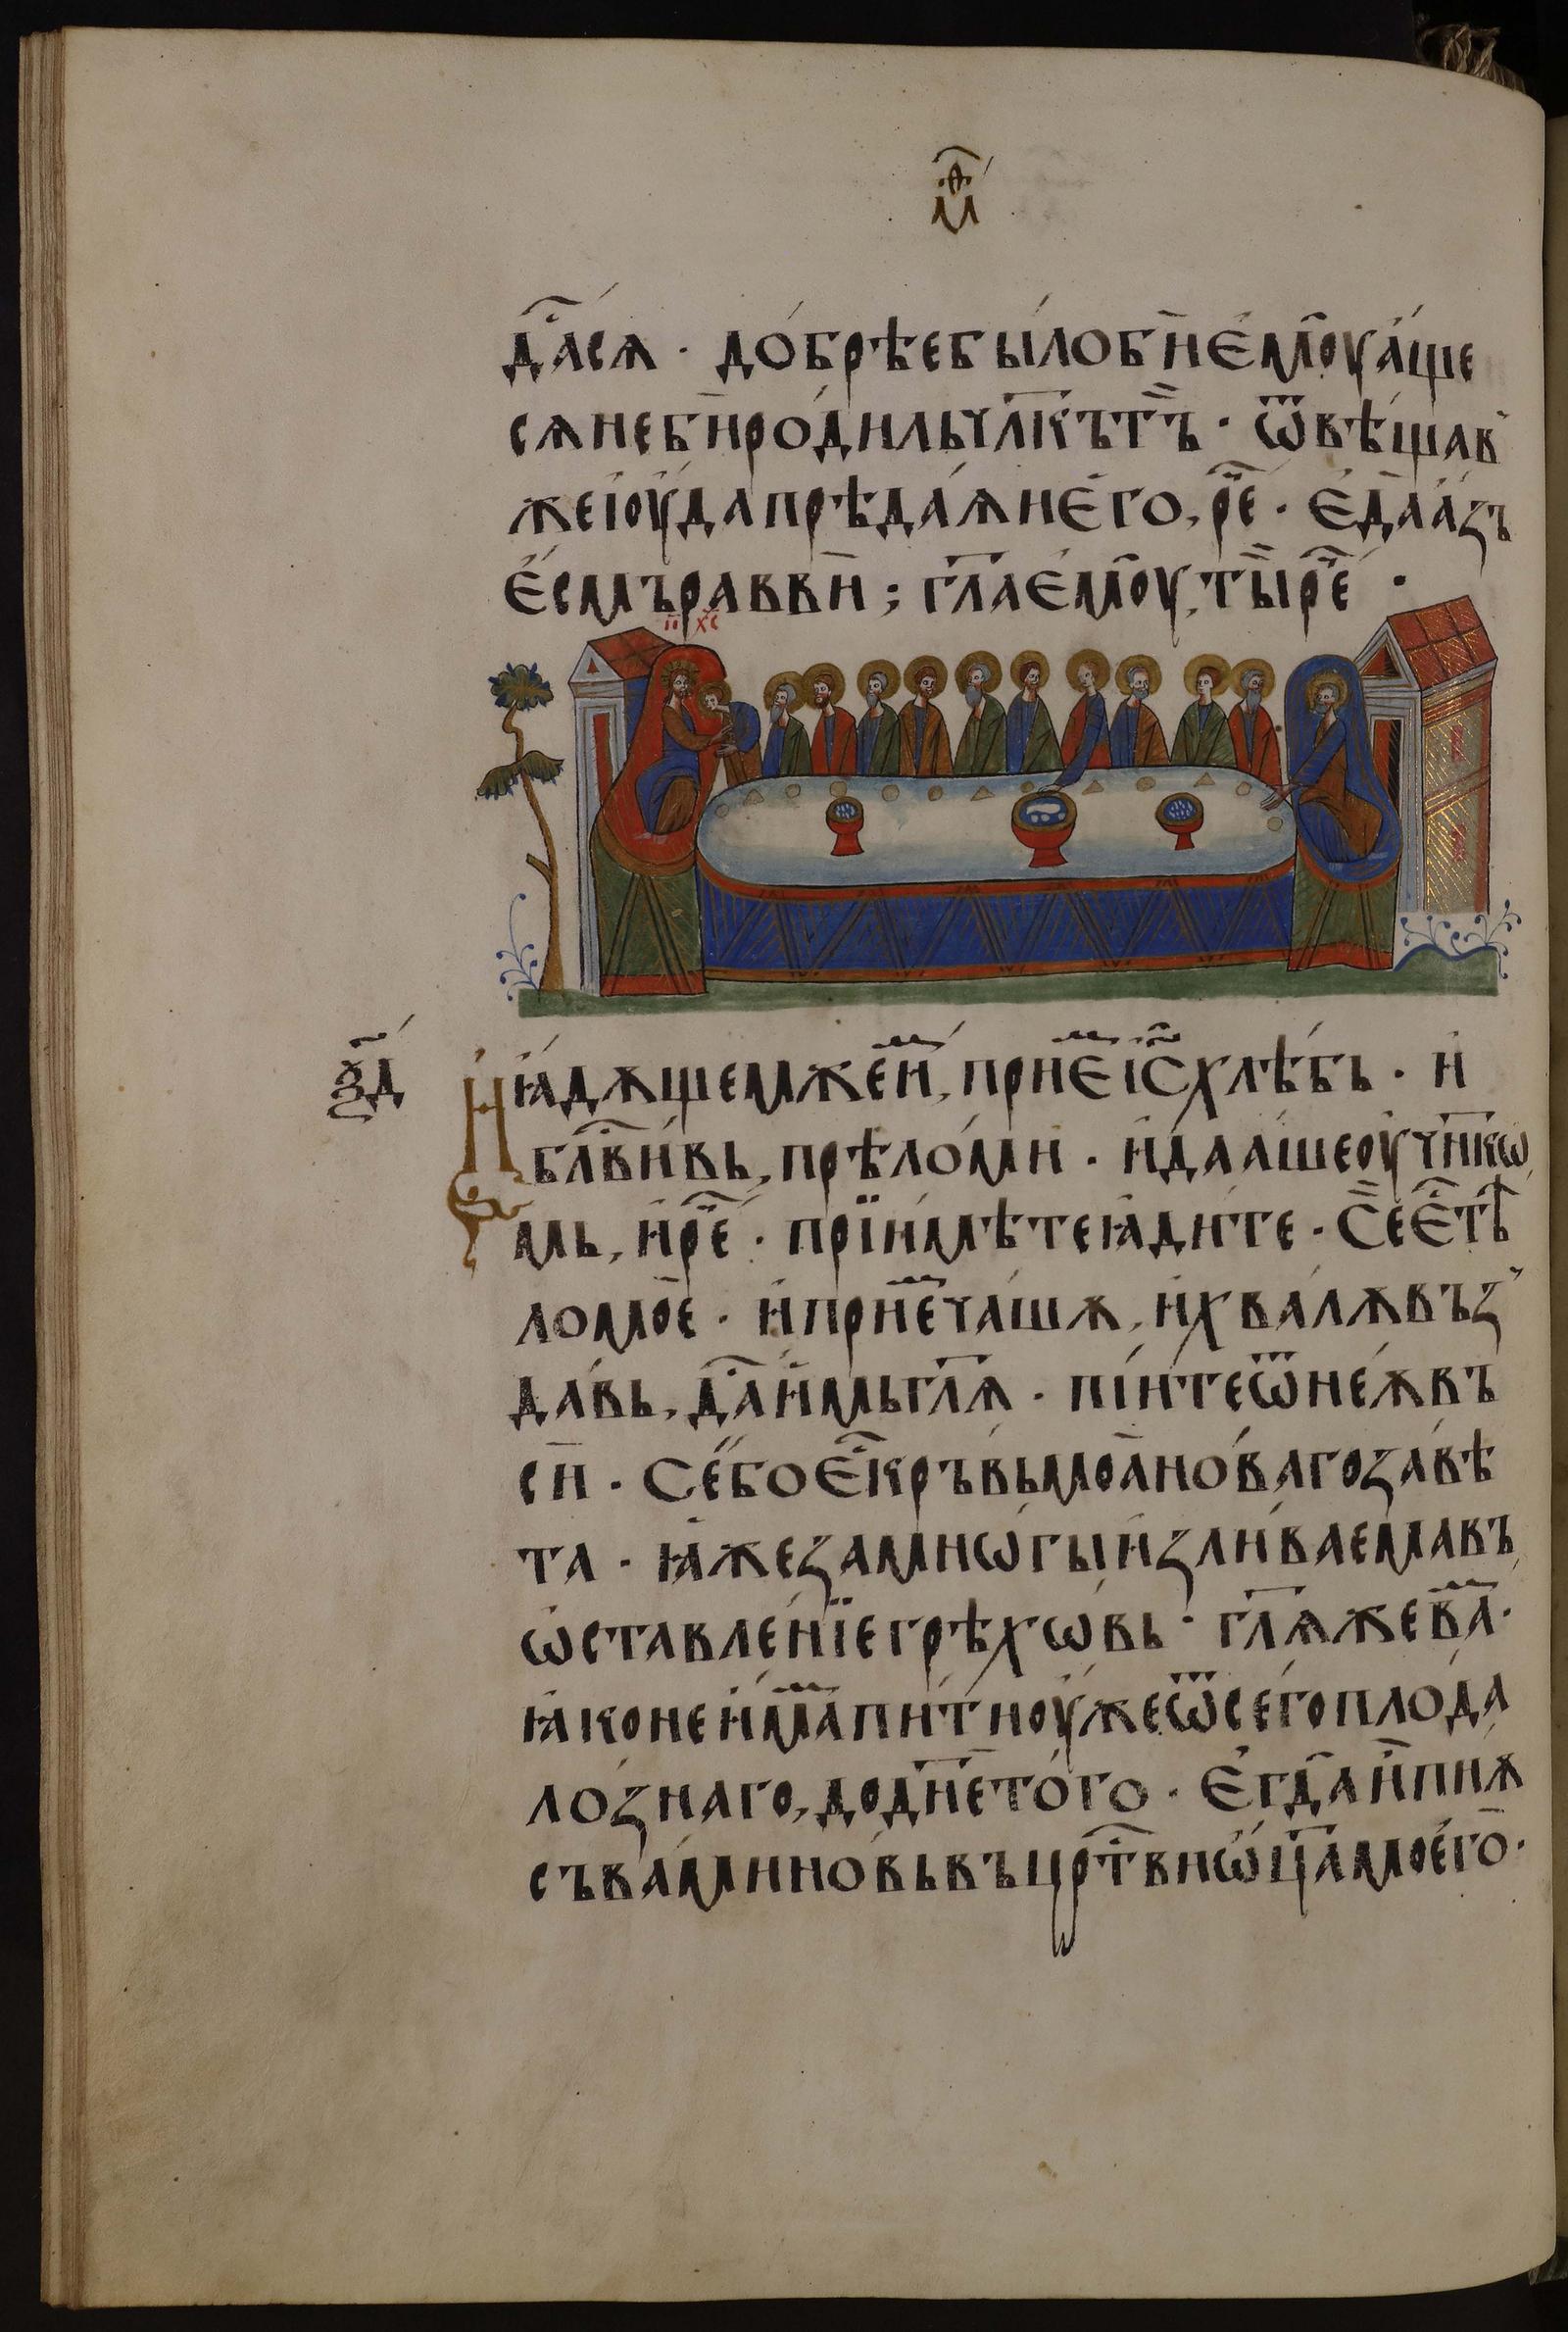 м҃а
дⷭ҇асѧ · до́брѣебы́лобы̀ е҆моу̀а́ще
сѧнебы̀роди́льчл҃кътъ̏ · ѿвѣща́в
жеі҆оу́дапрѣда́ѫи҆е҆го̀, рⷱ҇е · е҆даа́зъ
е҆́смъравви̏ ; гл҃ае҆моу̀, ты̏рⷱ҇е ·
іс хс
ѯ҃д
И҆ꙗ҆дѫщемжеи҆̀ⷨ, прїе́ⷨі҆с҃хлѣ́бь · и҆
блⷭ҇ви́вь, прѣло́ми · и҆даа́шеоу҆ч҃нкѡ
мь, и҆рⷱ҇е · прїи҆мѣ́теꙗ҆ди́те · се̏е҆́ⷭтѣ
ломоѐ · и҆прїе́ⷨча́шѫ, и҆хвалѫвъз
да́вь, дⷭ҇аи҆̀мьгл҃ѧ · пі́и́теѿнеѫ́въ
сѝ · се́боеⷭ҇крьвьмоа̀но́вагозавѣ́
та · ꙗ҆́жезамнѡ́гыи҆злива́емавъ
ѡ҆ставле́нїегрѣхѡ́вь · гл҃ѫжева́ⷨ ·
ꙗ҆конеи҆́маⷨпи́тноу҆́жеѿсего̀плода
ло́знаго, додн҃ето́го · е҆гда̀и҆̀пиѫ
съва́миновьвъцрⷭ҇твиѡ҆ц҃амоего̀ ·